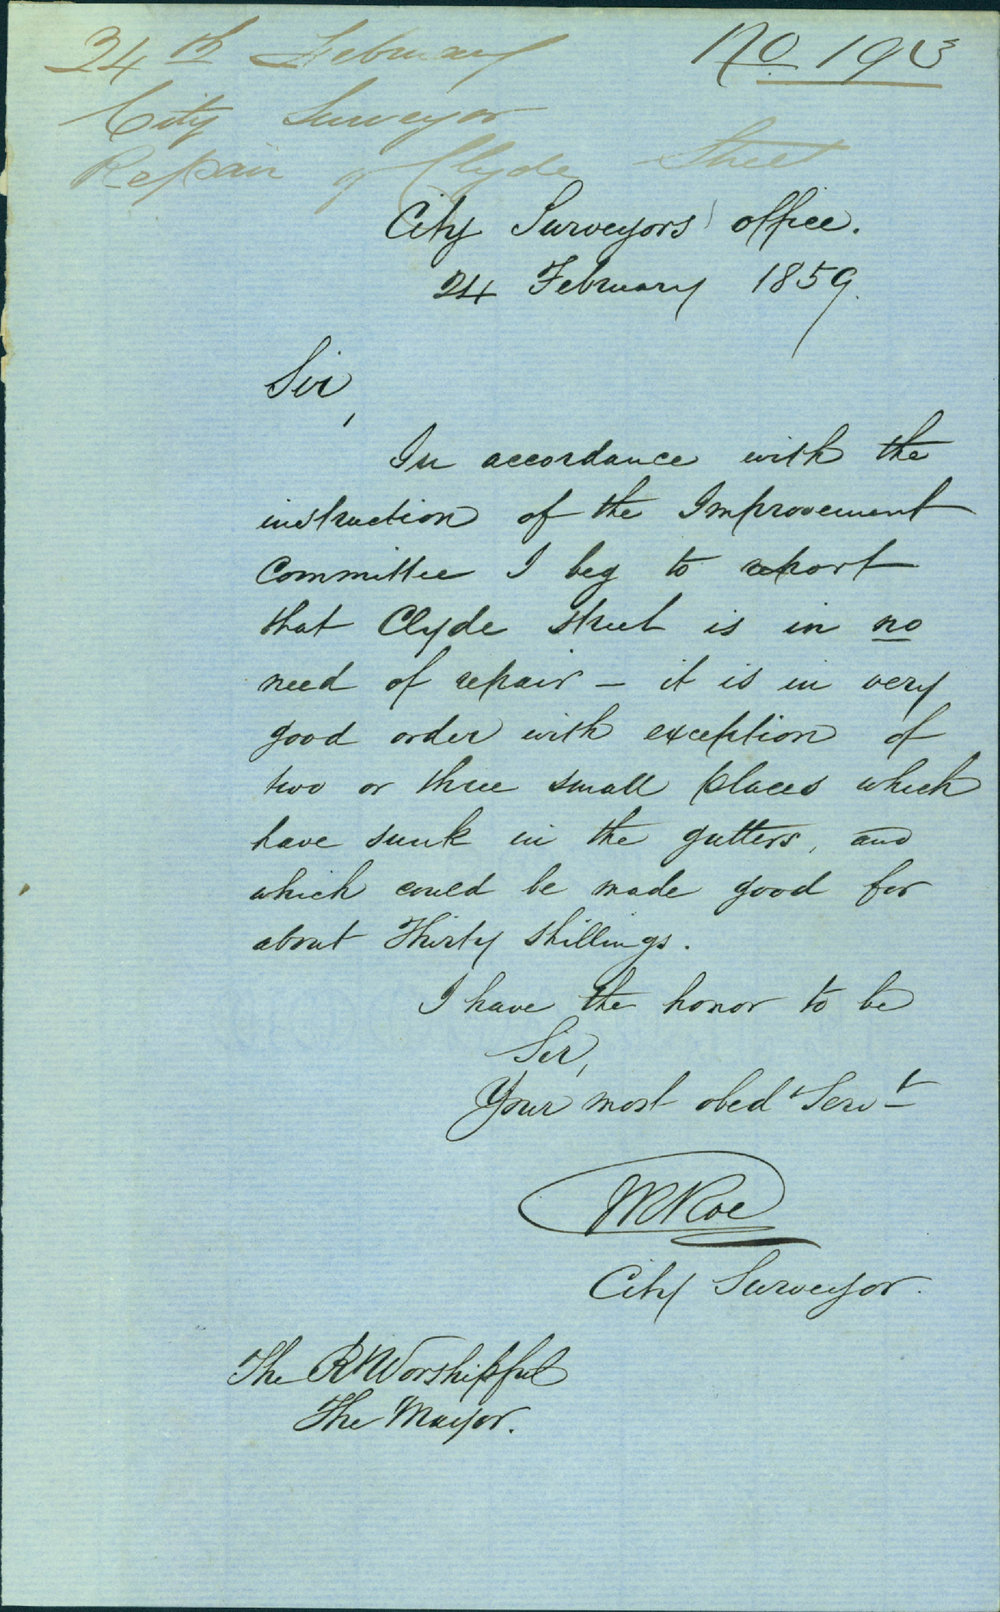 24th February
No 193
City Surveyor
Repair of Clyde Street
City Surveyors' office.
24 February 1859.
Sir,
In accordance with the
instruction of the Improvement
Committee I beg to report
that Clyde street is in no
need of repair – it is in very
good order with exception of
two or three small places which
have sunk in the gutters, and
which could be made good for
about Thirty shillings.
I have the honor to be
Sir,
Your most obedt Servt
WRoe
City Surveyor.
The Rt Worshipful
The Mayor.